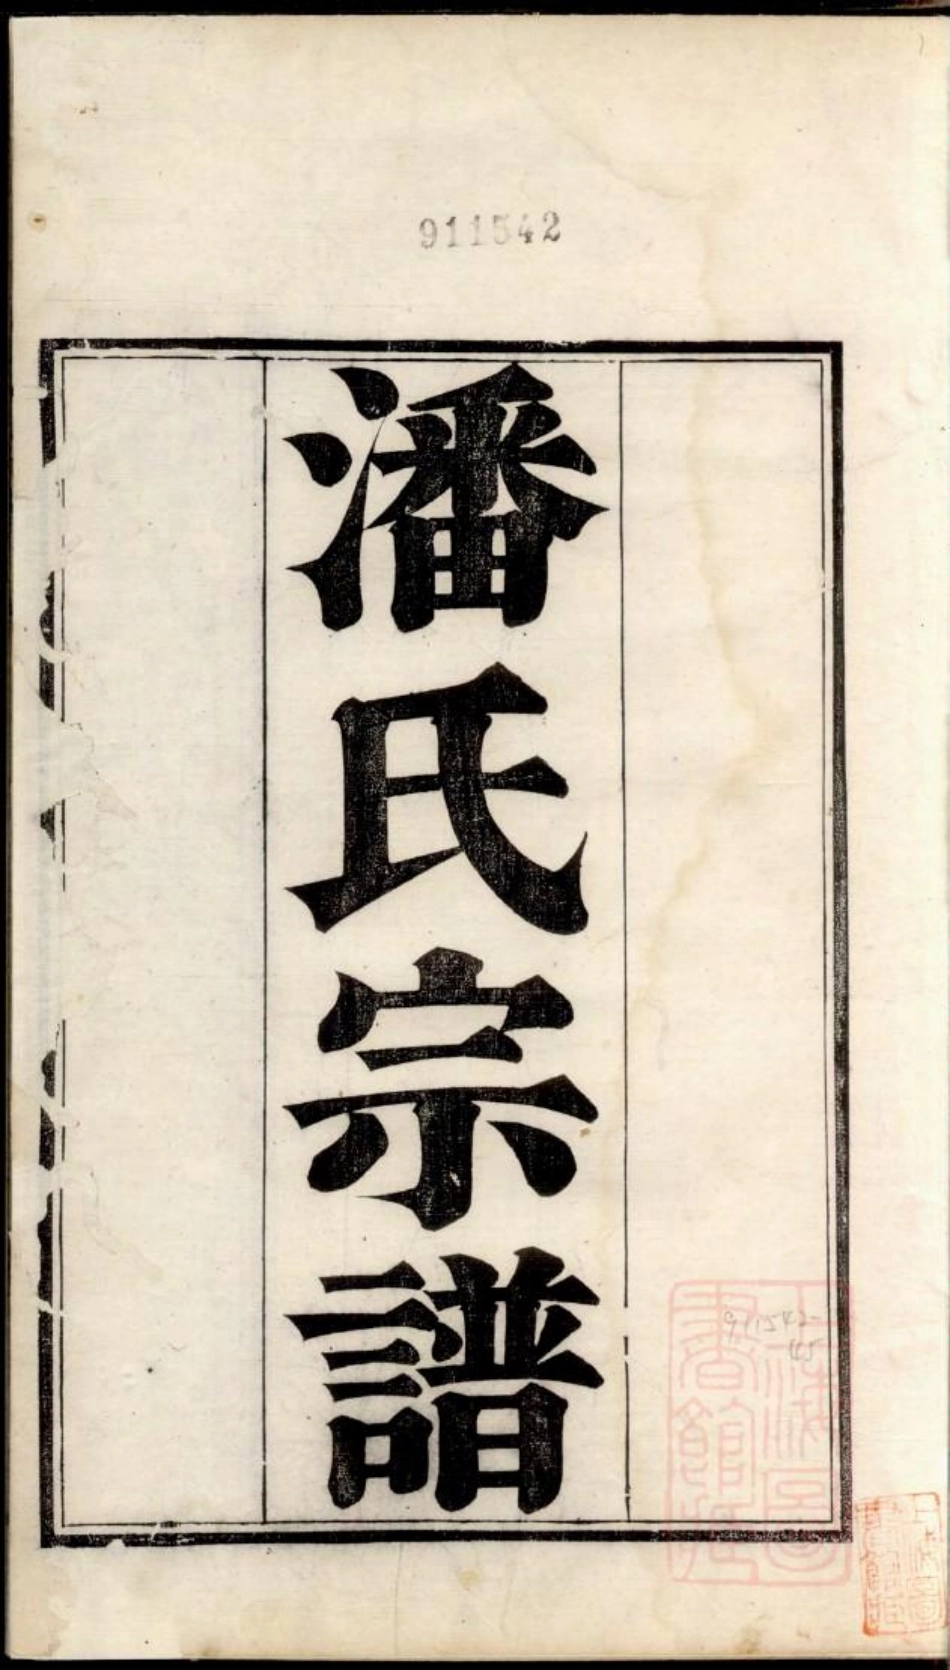 911542
潘氏宗譜
911542
45
上海圖
書館藏
上海圖
書館藏